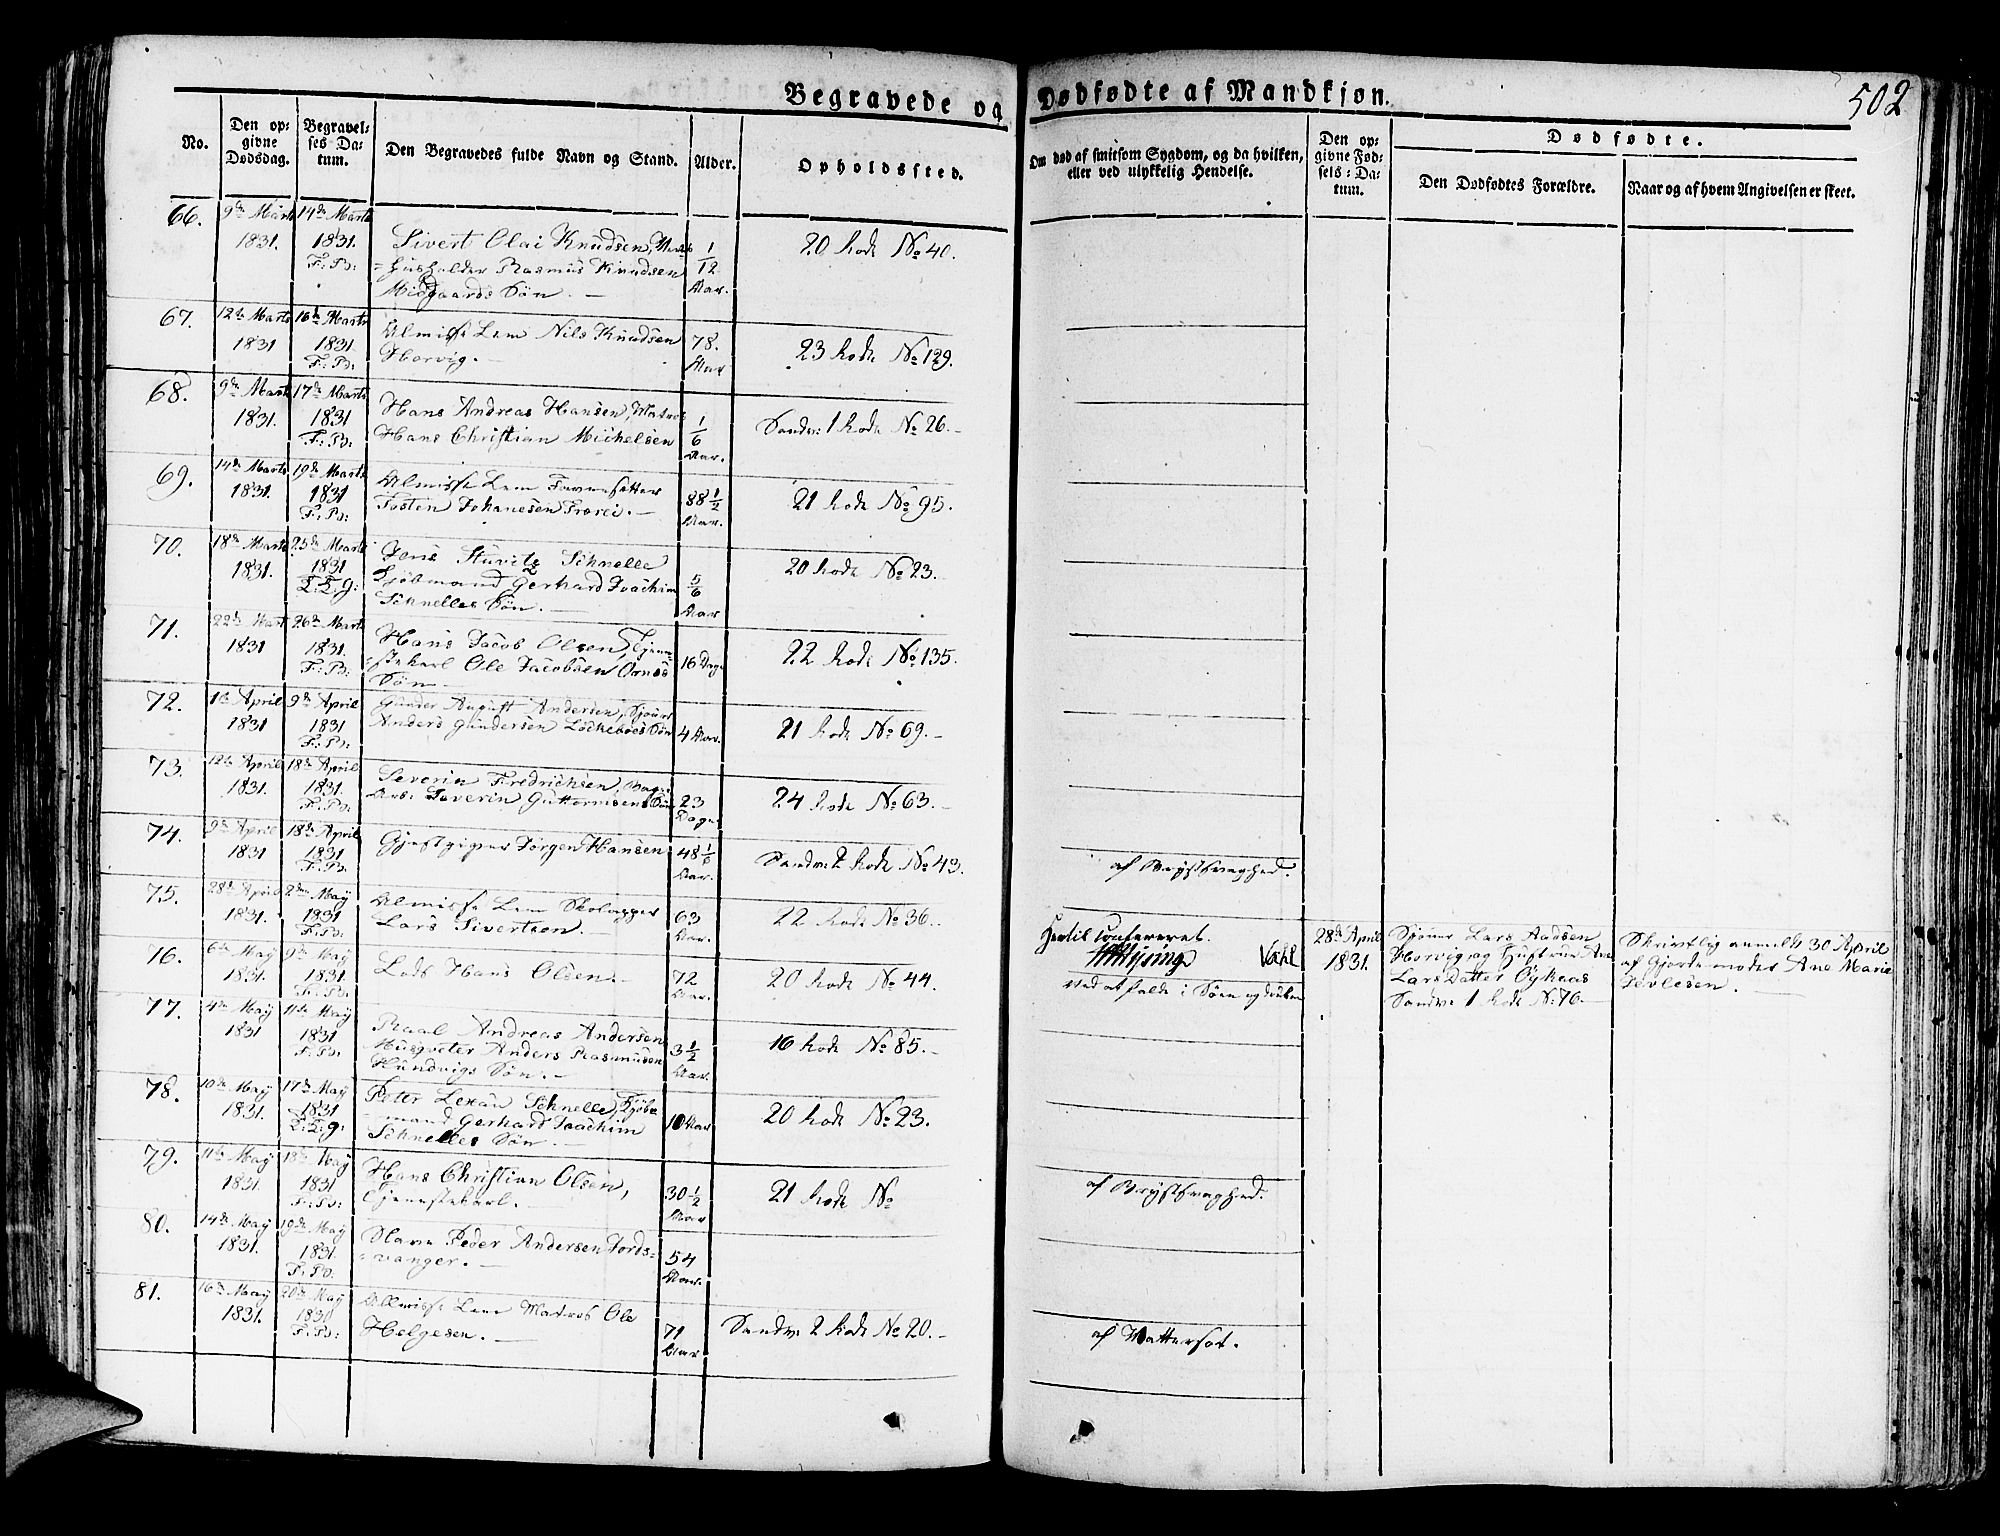 502
Begravede og Dødfødte af Mandkjøn.
No.
Den op-
givne
Dødsdag.
Begravel-
ses Da-
tum.
Den Begravedes fulde Navn og Stand.
Alder.
Opholdssted.
Om død af smitsom Sygdom, og da hvilken,
eller ved ulykkelig Hendelse.
Den op-
givne Fød-
sels-Da-
tum.
Dødfødte.
Den Dødfødtes Forældre.
Naar og af hvem Angivelsen er skeet.
66. 9de Marts 14de Marts
1831. 1831. Sivert Olai Knudsen, 1/12 20 Rode No 40.
F: B: husholder Rasmus Knudsen
Midgaards Søn. Aar.
67. 12te Marts 16de Marts Almisse Lem Nils Knudsen 78.
1831 1831. Horvig. Aar 23 Rode No 129.
F: B:
68. 9de Marts 17de Marts Hans Andreas Hansen, Matros 1/6
1831. 1831 Hans Christian Michelsen Aar. Sandv: 1 Rode No 26.
F: B:
69. 14de Marts 19de Marts Almisse Lem
1831. 1831 Tosten Johanesen 88 1/2 21 Rode No 95.
F: B: Aar.
70. 18de Marts 25de Marts Jens Stuvitz Schnelle
1831. 1831 Kjøbmand Gerhard Joachim 5/6 20 Rode No 23.
Schnelles Søn. Aar
71. 22de Marts 26de Marts Hans Jacob Olsen, Tjene-
1831 1831. stekarl Ole Jacobsen 16 Dage 22 Rode No 135.
F: B: Søn
72. 1te April 9de April Gunder August Andersen,
1831 1831 Anders Gundersen Løckeboes Søn 4 Aar. 21 Rode No 69.
F: B:
73. 12te April 18de April Severin Fredrichsen,
1831. 1831. Severin Guttormsens Søn 23 Dage 24 Rode No 63.
F: B:
74. 9de April 18de April Gjestgiver Jørgen Hansen 48 1/6
1831 1831 Aar. Sandv: 2 Rode No 43. af Brystsvaghed.
F: B:
75. 28de April 2den May Almisse Lem
1831. 1831 Lars Sivertsen 63 Aar. 22 Rode No 36.
F: B:
Hertil confereret.
28de April
1831.
Lars
Horvig og Hustrue Ane
Lars Datter
Sandv: 1 Rode No 76.
Skriftlig anmeldt 30 April
af Gjordemoder Ane Marie
76. 6te May 9de May Lods Hans Olsen. 72 Aar. 20 Rode No 44. ved at falde i Søen og
1831. 1831.
F: B:
77. 4de May 11te May Andreas Andersen
1831 1831 Anders Rasmusen 3 1/2 16 Rode No 85.
F: B: Hundvigs Søn. Aar.
78. 10de May 17de May Peter Schnelle, Kjøb-
1831. 1831 mand Gerhard Joachim 10 Aar 20 Rode No 23.
Schnelles Søn.
79. 11te May 18de May Hans Christian Olsen,
1831. 1831 Tjenestekarl. 30 1/2 Aar 21 Rode No af Brystsvaghed.
F: B:
80. 14de May 19de May Peder Andersen Fords-
1831. 1831. vanger. 54 Aar.
F: B:
81. 16de May 20de May Almisse Lem Matros Ole
1831. 1831 Helgesen. 71 Aar Sandv: 2 Rode No 20. af Vattersot.
F: B: